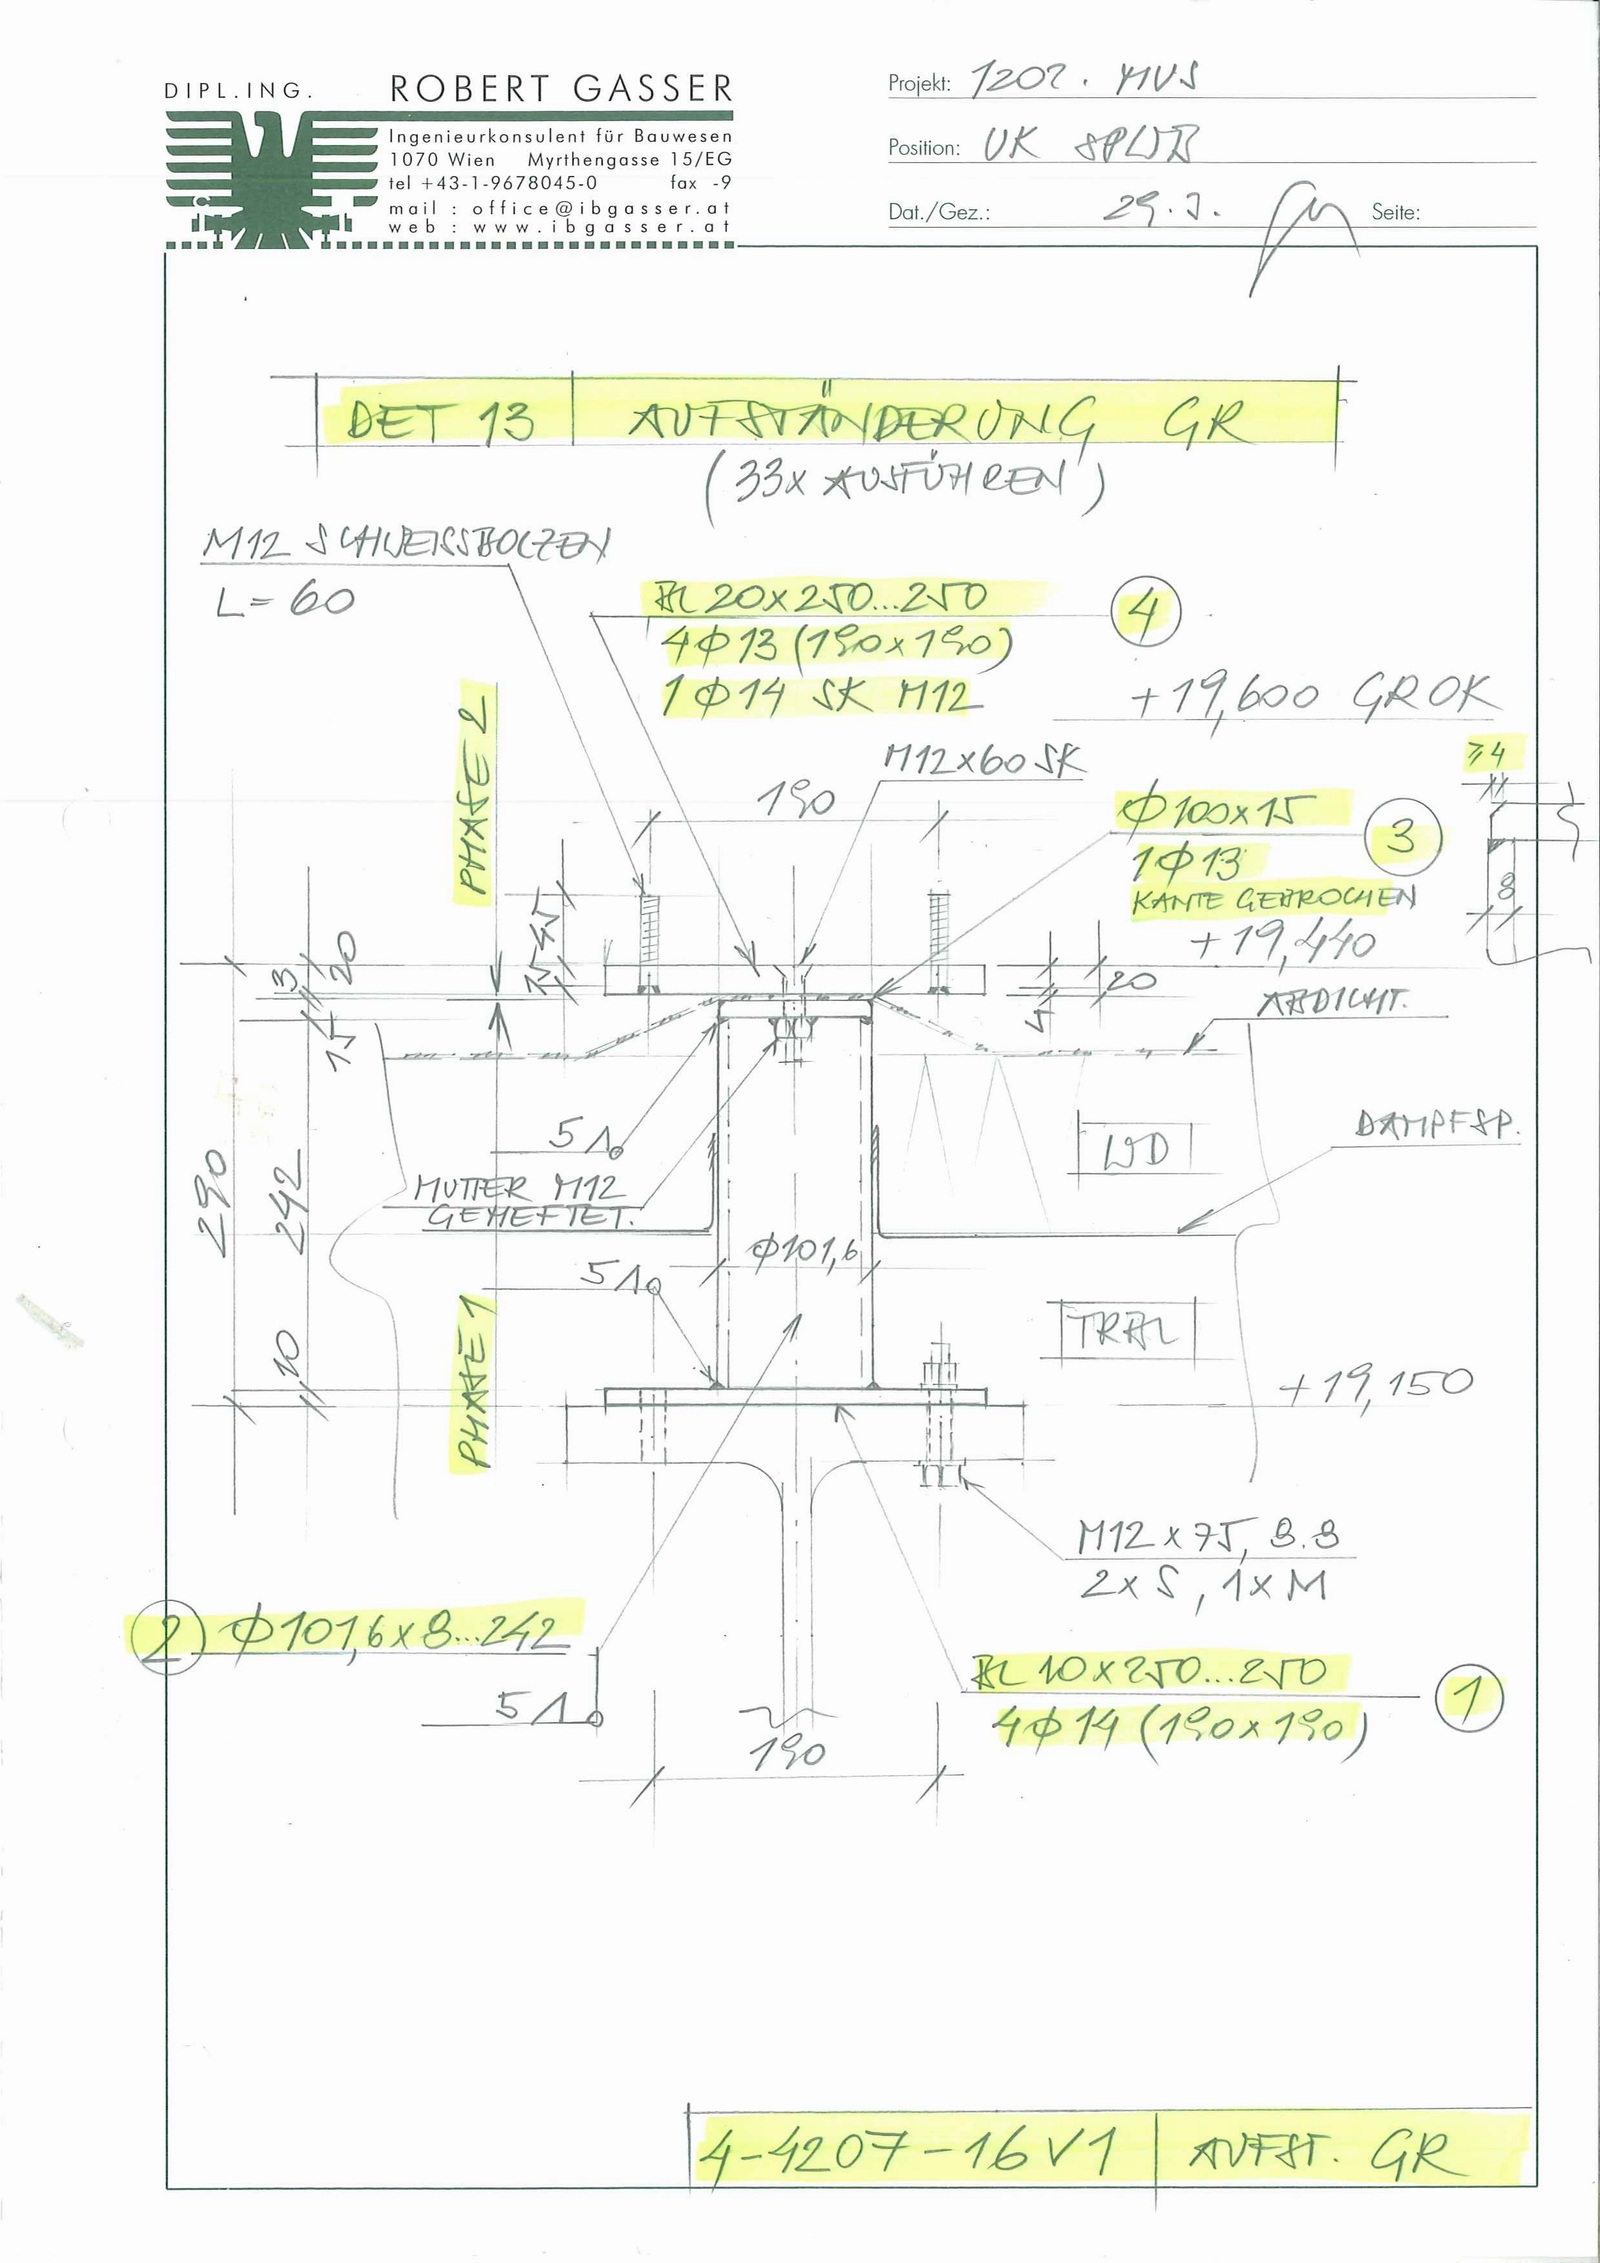 DIPL.ING. ROBERT GASSER
Ingenieurkonsulent für Bauwesen
1070 Wien Myrthengasse 15/EG
tel +43-1-9678045-0 fax -9
mail : office@ibgasser.at
web : www.ibgasser.at
Projekt: 1202. MVS
Position: UK
Dat./Gez.: 29.3. Seite:
DET 13 AUFSTÄNDERUNG GR
(33x AUSFÜHREN)
M12 SCHWEISSBOLZEN
L=60
BL 20x250...250
4
4Φ13 (190x190)
1Φ14 SK M12
+19,600 GROK
PHASE 2
M12x60 SK
≥4
190
Φ100x15
3
1Φ13
KANTE GEBROCHEN
8
+19,440
45
15
20
3
15
20
4
ABDICHT.
5
DAMPFSP.
WD
MUTTER M12
GEHEFTET.
290
242
Φ101,6
5
PHASE 1
TRBL
10
+19,150
M12x75, 8.8
2xS, 1xM
2 Φ101,6x8...242
5
BL 10x250...250
1
4Φ14 (190x190)
190
4-4207-16V1 AUFST. GR